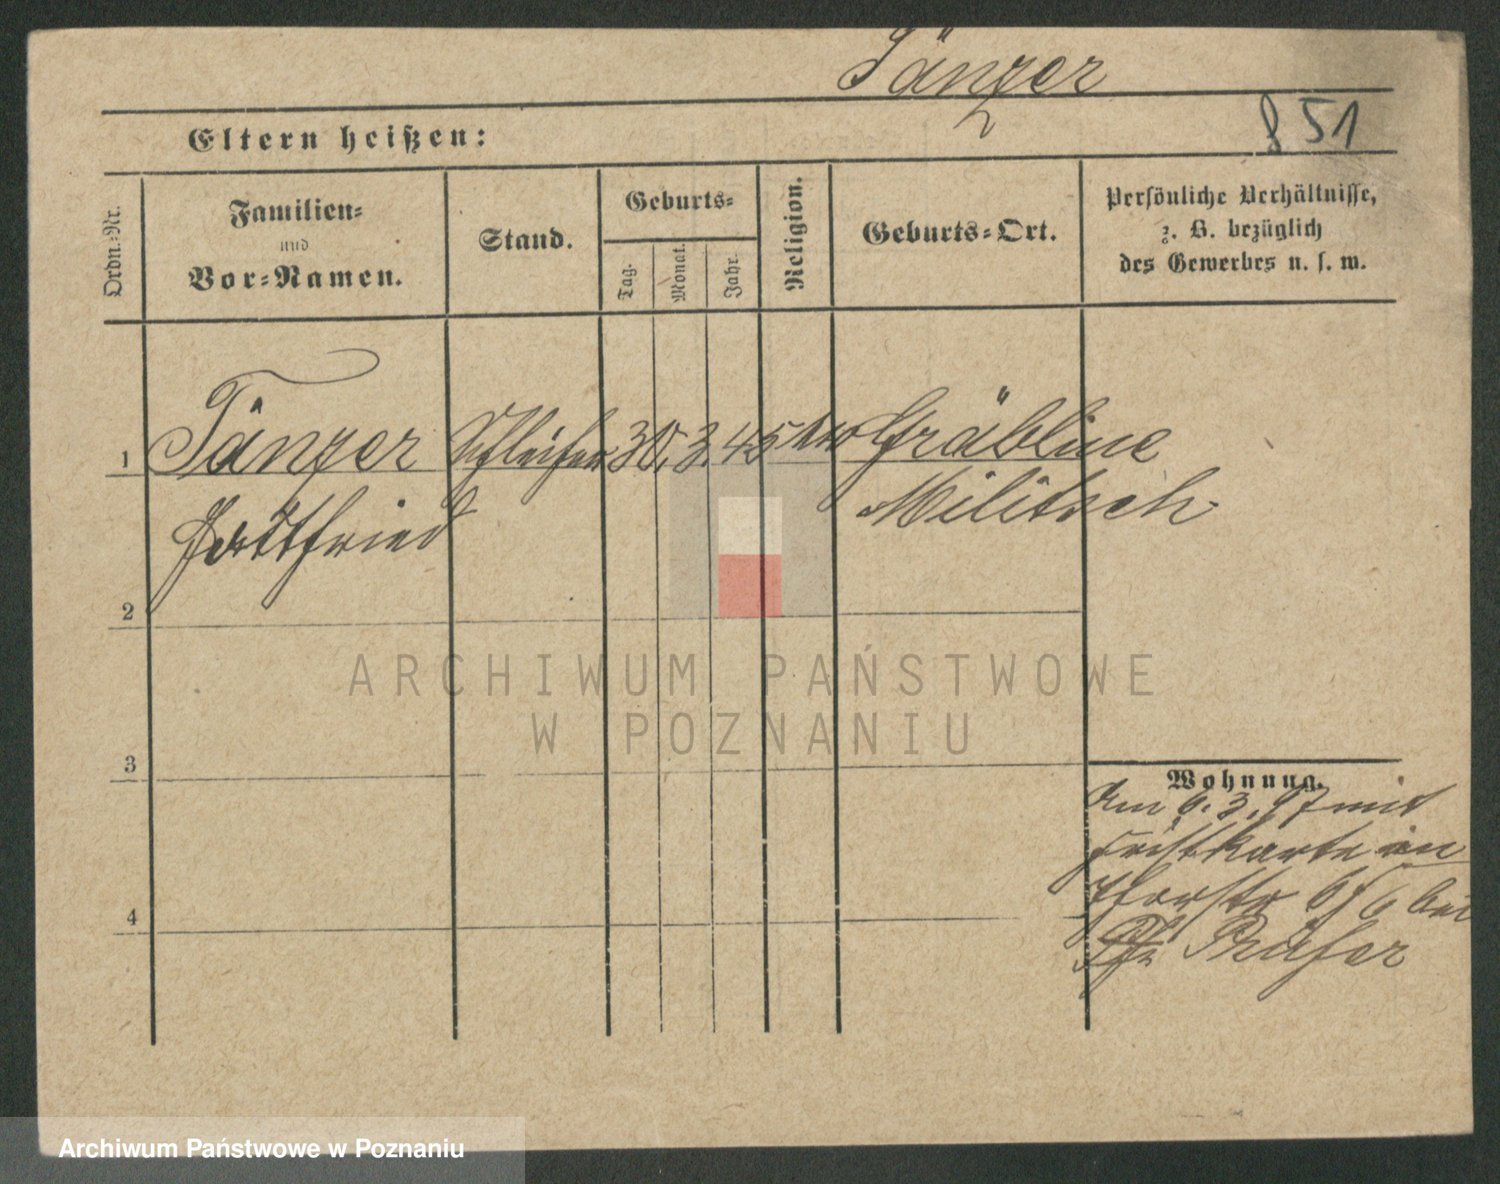 Tänzer
851
Eltern heißen:
Ordn.=Nr.
Familien=
und
Vor=Namen.
Stand.
Geburts=
Tag.
Monat.
Jahr.
Religion.
Geburts=Ort.
Persönliche Verhältnisse,
z. B. bezüglich
des Gewerbes u. s. w.
1 Tänzer Schleifer 30. 3. 45 Gräbline
Gottfried Militsch
2
3
4
Wohnung.
Am 6. 3. 97 mit
Fristkarte in
bei
ARCHIWUM PAŃSTWOWE
W POZNANIU
Archiwum Państwowe w Poznaniu